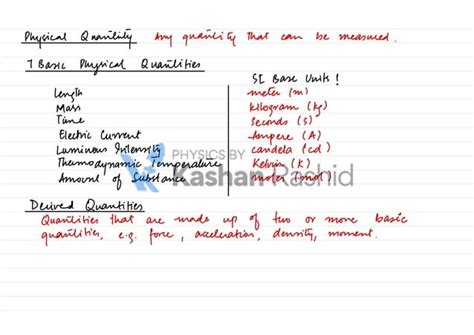 Physical Quantity Any quantity that can be measured.
7 Basic Physical Quantities
SI Base Units!
Length meter (m)
Mass kilogram (kg)
Time Seconds (s)
Electric Current Ampere (A)
Luminous Intensity candela (cd)
Thermodynamic Temperature Kelvin (K)
Amount of Substance (mol)
PHYSICS BY
Kashan Rashid
Derived Quantities
Quantities that are made up of two or more basic
quantities, e.g. force, acceleration, density, moment.